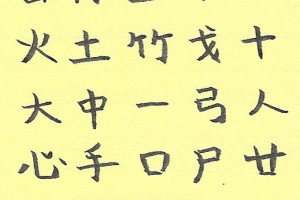 火土竹戈十
大中一弓人
心手口尸廿